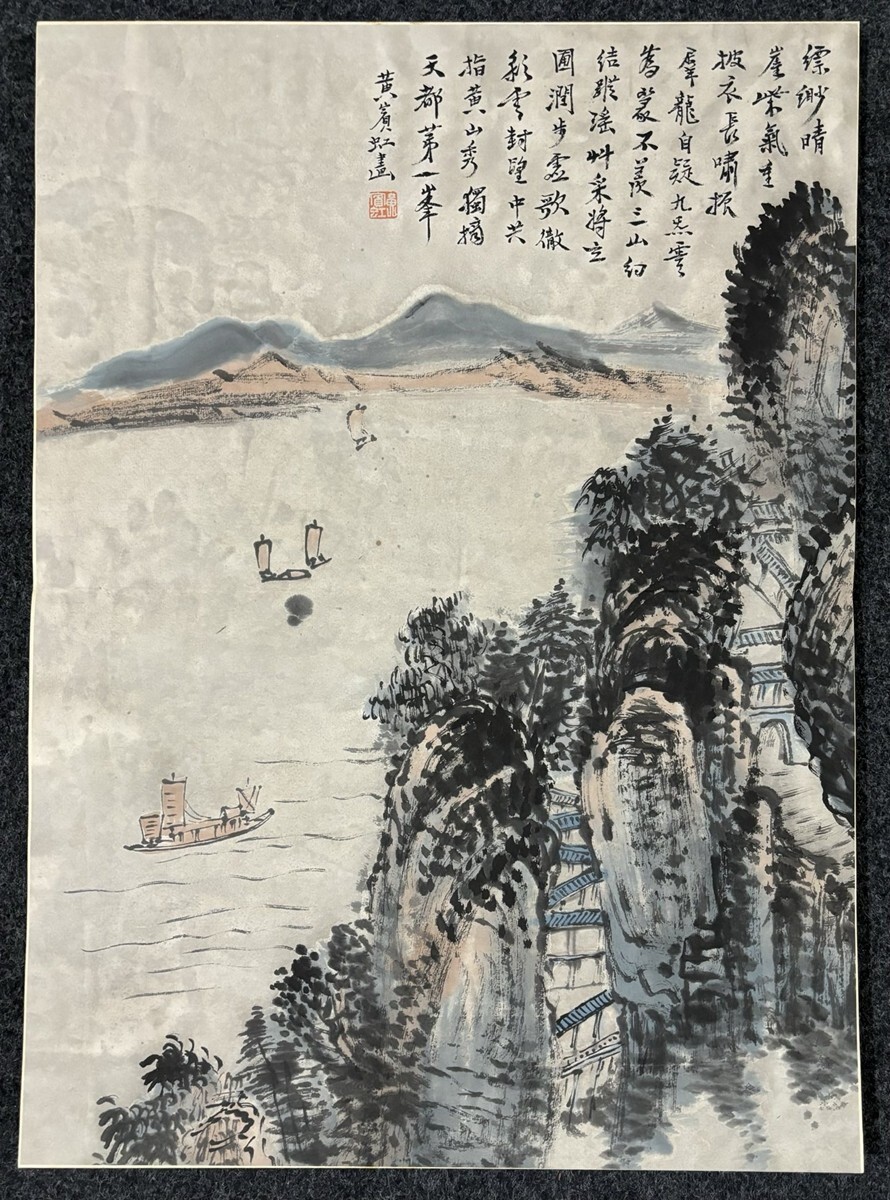 縹緲晴
崖紫氣重
披衣長嘯振
羣龍自疑九炁雲
為裳不羨三山幻
結蹤瑤艸采將玄
圃潤步虛歌徹
彩雲封望中共
指黃山秀獨摘
天都第一峯
黃賓虹畫